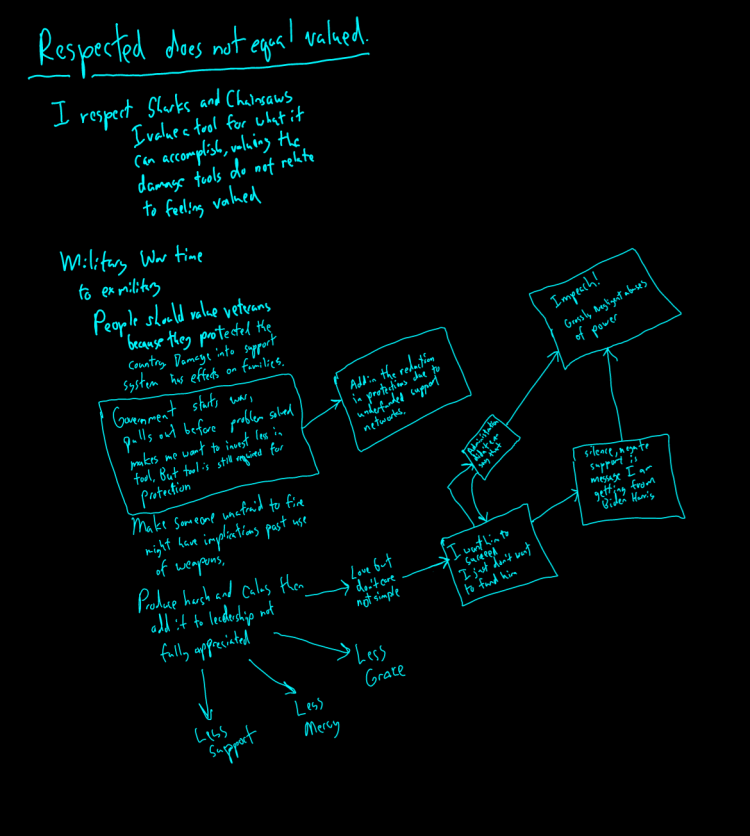 Respected does not equal valued.
I respect Sharks and Chainsaws
I value a tool for what it
can accomplish, valuing the
damage tools do not relate
to feeling valued
Military War time
to exmilitary
People should value veterans
because they protected the
country. Damage into support
system has effects on families.
Government starts war,
pulls out before problem solved
makes me want to invest less in
tool, But tool is still required for
protection
Add in the reduction
in protections due to
underfunded support
networks.
Make someone unafraid to fire
might have implications past use
of weapons.
Produce harsh and Calus then
add it to leadership not
fully appreciated
Less
Support
Less
Mercy
Less
Grace
Love but
don't care
not simple
I want him to
succeed
I just don't want
to fund him
Administration
didn't ever
say that
silence, negate
support is
message I am
getting from
Biden Harris
Impeach!
Grossly negligent abuses
of power